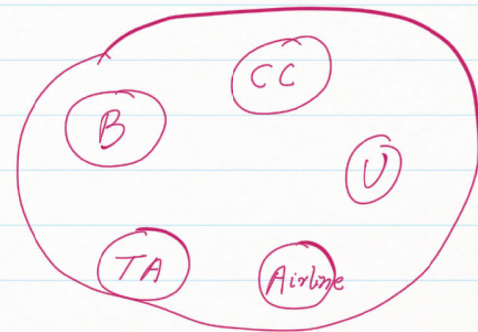 CC
B
U
TA
Airline